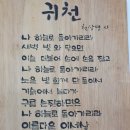 귀천
천상병 시
나 하늘로 돌아가리라
새벽 빛 와 닿으면
이슬 더불어 손에 손을 잡고
나 하늘로 돌아가리라
노을 빛 함께 단 둘이서
기슭에서 놀다가
구름 손짓하면은
나 하늘로 돌아가리라
아름다운 이 세상